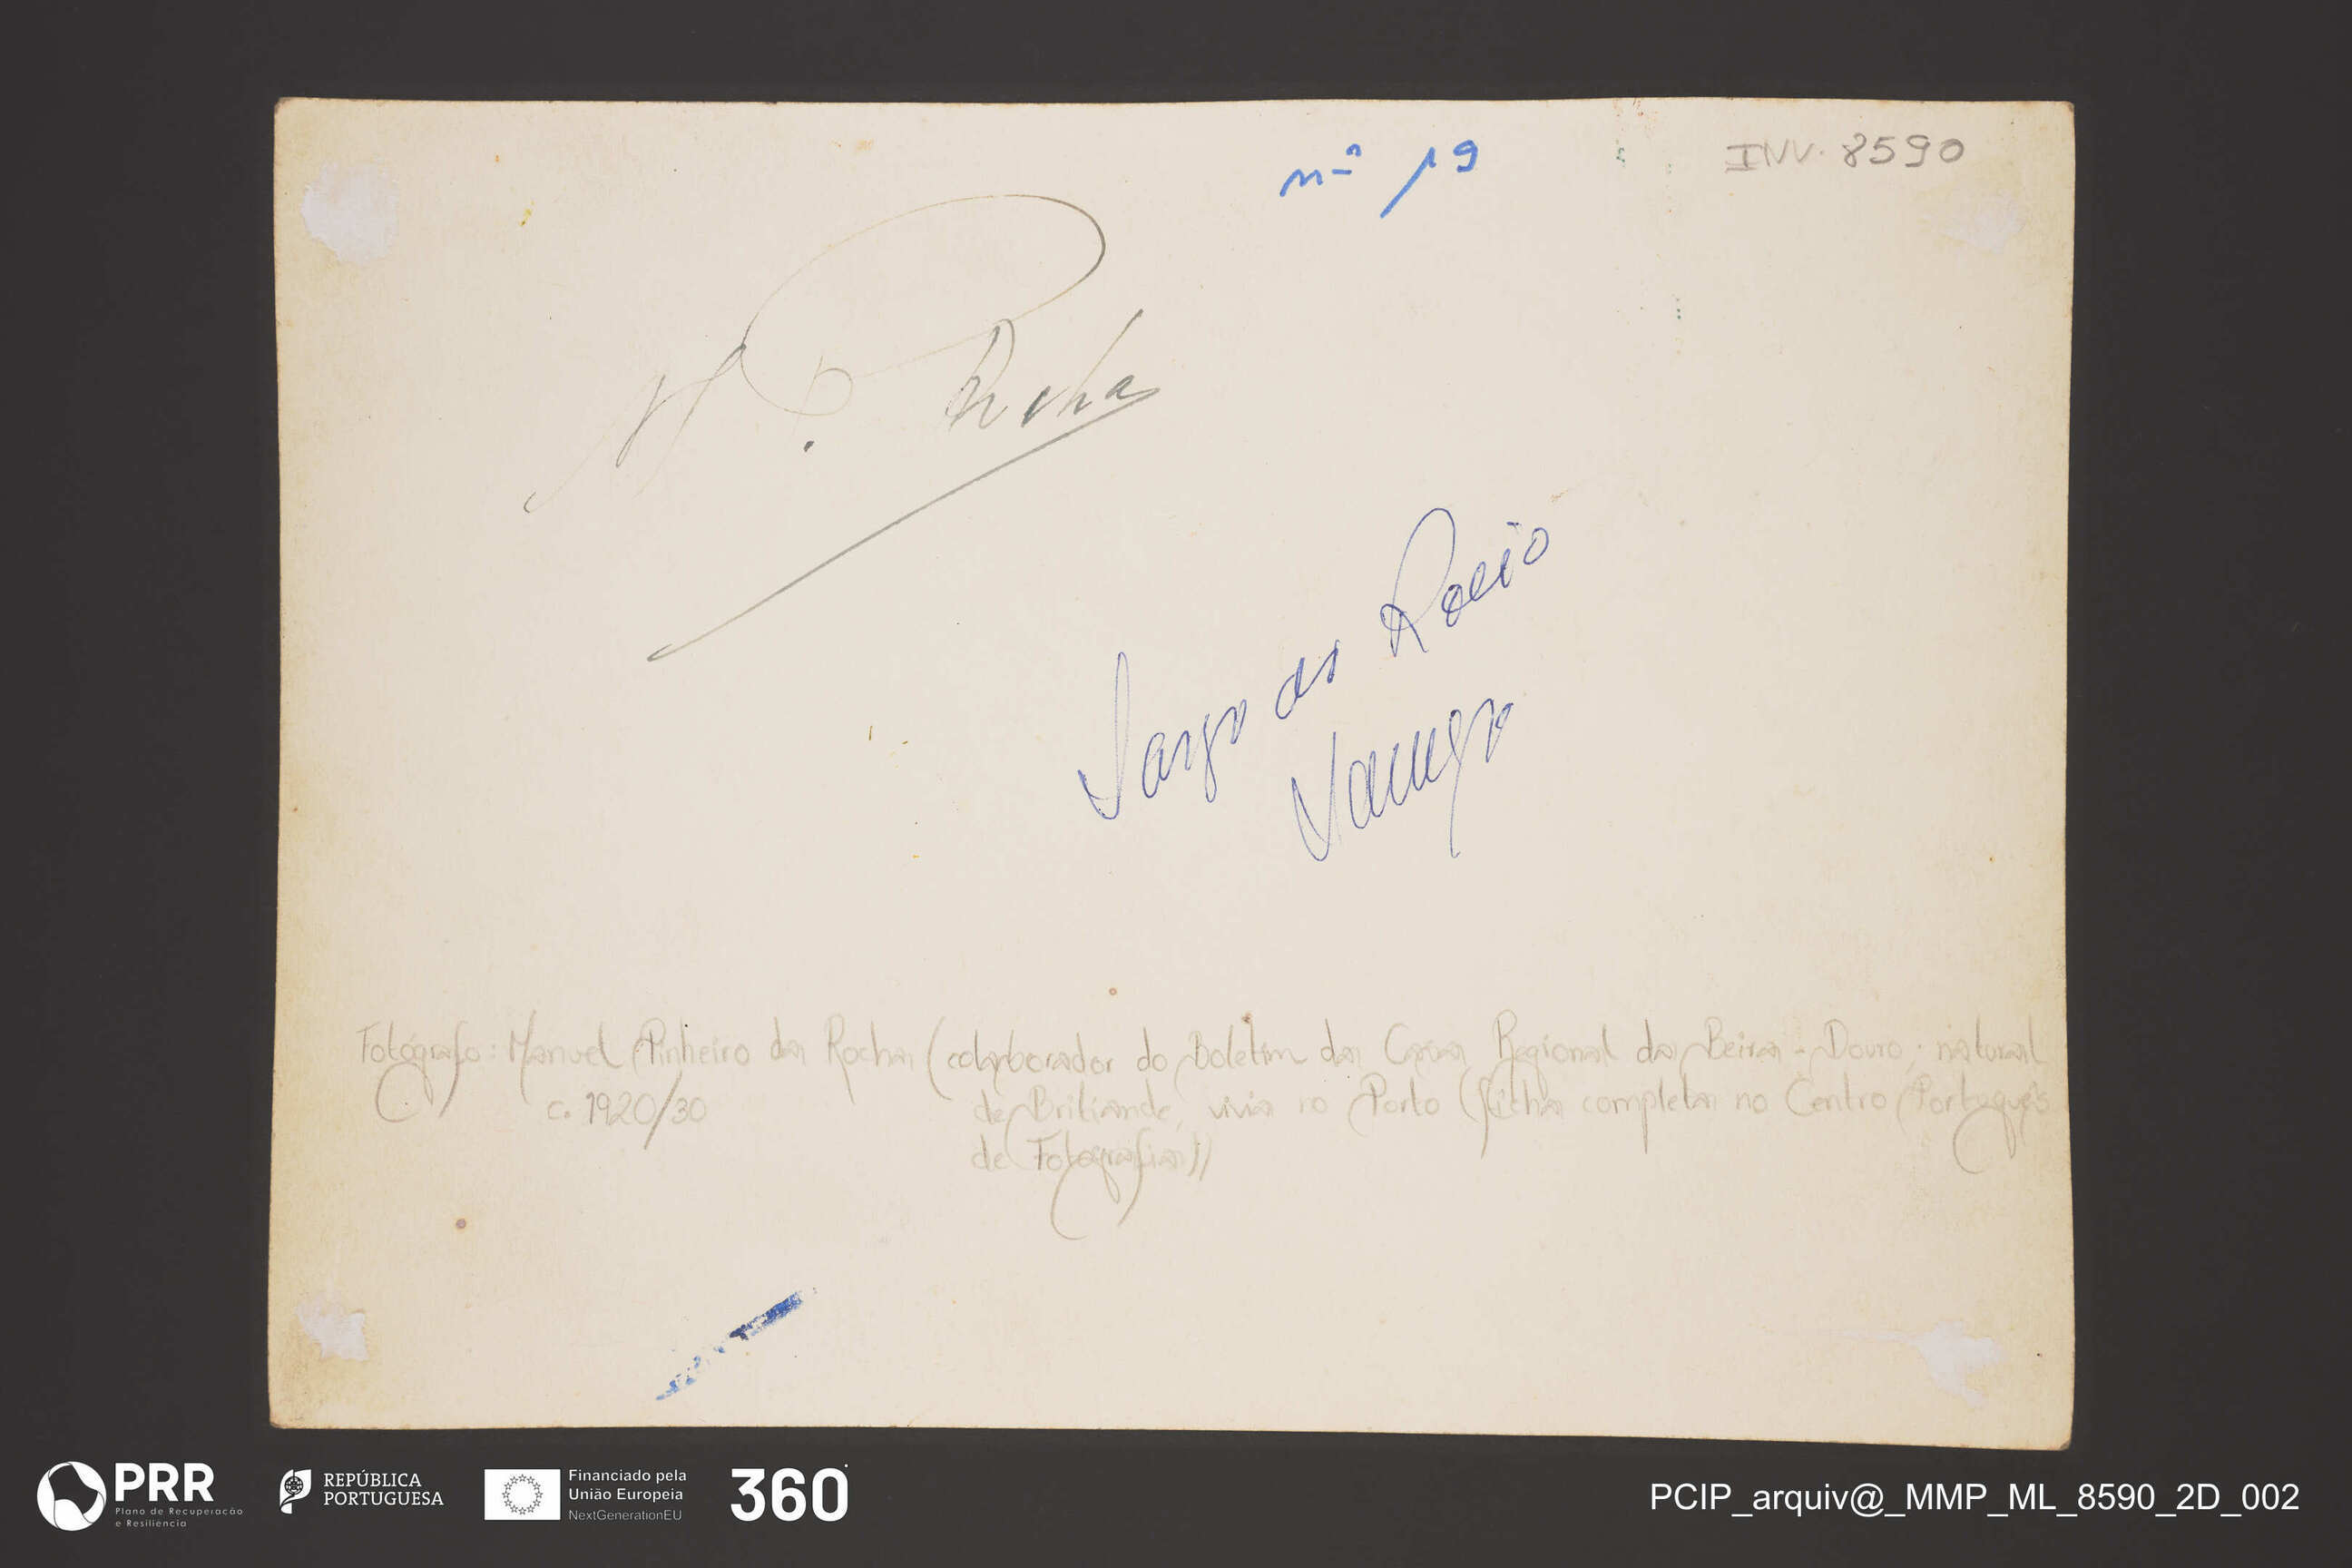 nº 19
INV. 8590
M. P. Rocha
Largo do Rocio
Lamego
Fotógrafo: Manuel Pinheiro da Rocha (colaborador do Boletim da Casa Regional da Beira-Douro; natural
c. 1920/30
de Britiande, vivia no Porto (ficha completa no Centro Português
de Fotografia))
PRR
Plano de Recuperação
e Resiliência
REPÚBLICA
PORTUGUESA
Financiado pela
União Europeia
NextGenerationEU
360
PCIP_arquiv@_MMP_ML_8590_2D_002